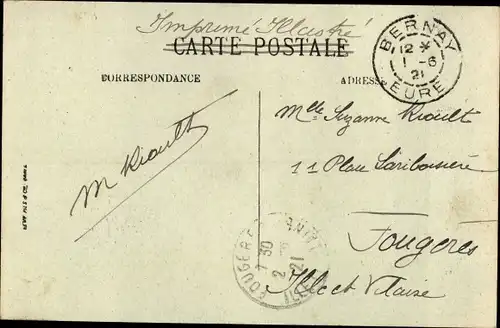 Imprimé Illustré
CARTE POSTALE
CORRESPONDANCE
ADRESSE
BERNAY
12 *
1 - 6
21
EURE
Mlle Suzanne Rioult
11 Place Lariboisière
Fougères
Ille et Vilaine
M Rioult
FOUGERES
7 30
2 - 6
21